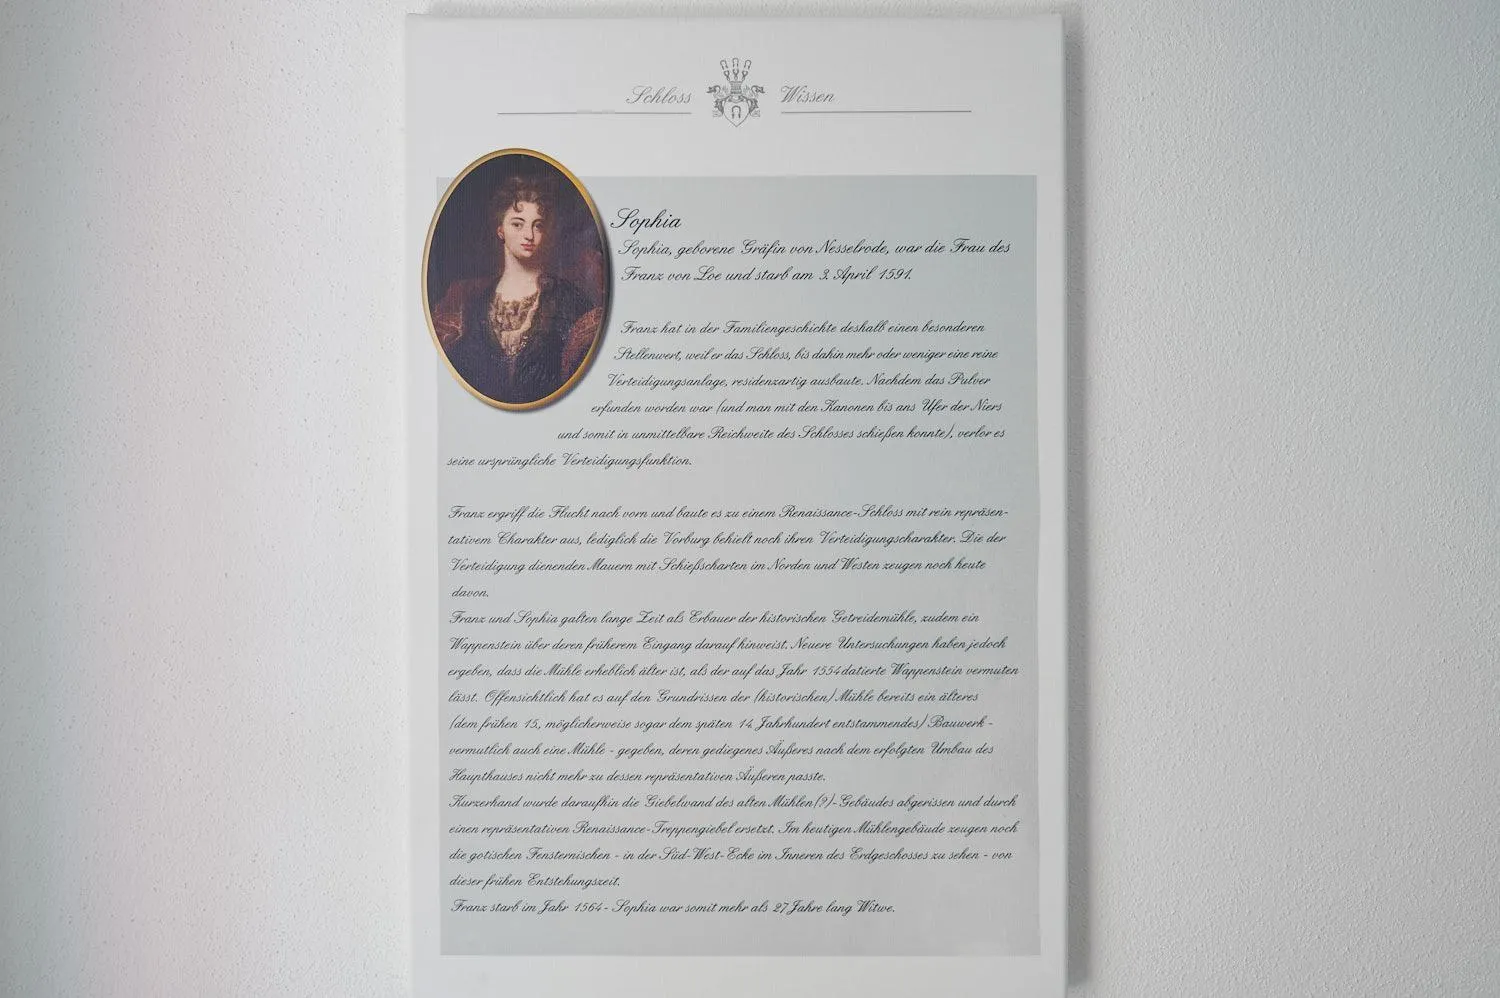 Schloss Wissen
Sophia
Sophia, geborene Gräfin von Nesselrode, war die Frau des
Franz von Loe und starb am 3. April 1591.
Franz hat in der Familiengeschichte deshalb einen besonderen
Stellenwert, weil er das Schloss, bis dahin mehr oder weniger eine reine
Verteidigungsanlage, residenzartig ausbaute. Nachdem das Pulver
erfunden worden war (und man mit den Kanonen bis ans Ufer der Niers
und somit in unmittelbare Reichweite des Schlosses schießen konnte), verlor es
seine ursprüngliche Verteidigungsfunktion.
Franz ergriff die Flucht nach vorn und baute es zu einem Renaissance-Schloss mit rein repräsen-
tativem Charakter aus, lediglich die Vorburg behielt noch ihren Verteidigungscharakter. Die der
Verteidigung dienenden Mauern mit Schießscharten im Norden und Westen zeugen noch heute
davon.
Franz und Sophia galten lange Zeit als Erbauer der historischen Getreidemühle, zudem ein
Wappenstein über deren früherem Eingang darauf hinweist. Neuere Untersuchungen haben jedoch
ergeben, dass die Mühle erheblich älter ist, als der auf das Jahr 1554 datierte Wappenstein vermuten
lässt. Offensichtlich hat es auf den Grundrissen der (historischen) Mühle bereits ein älteres
(dem frühen 15., möglicherweise sogar dem späten 14. Jahrhundert entstammendes) Bauwerk -
vermutlich auch eine Mühle - gegeben, deren gediegenes Äußeres nach dem erfolgten Umbau des
Haupthauses nicht mehr zu dessen repräsentativen Äußeren passte.
Kurzerhand wurde daraufhin die Giebelwand des alten Mühlen(?)-Gebäudes abgerissen und durch
einen repräsentativen Renaissance-Treppengiebel ersetzt. Im heutigen Mühlengebäude zeugen noch
die gotischen Fensternischen - in der Süd-West-Ecke im Inneren des Erdgeschosses zu sehen - von
dieser frühen Entstehungszeit.
Franz starb im Jahr 1564 - Sophia war somit mehr als 27 Jahre lang Witwe.